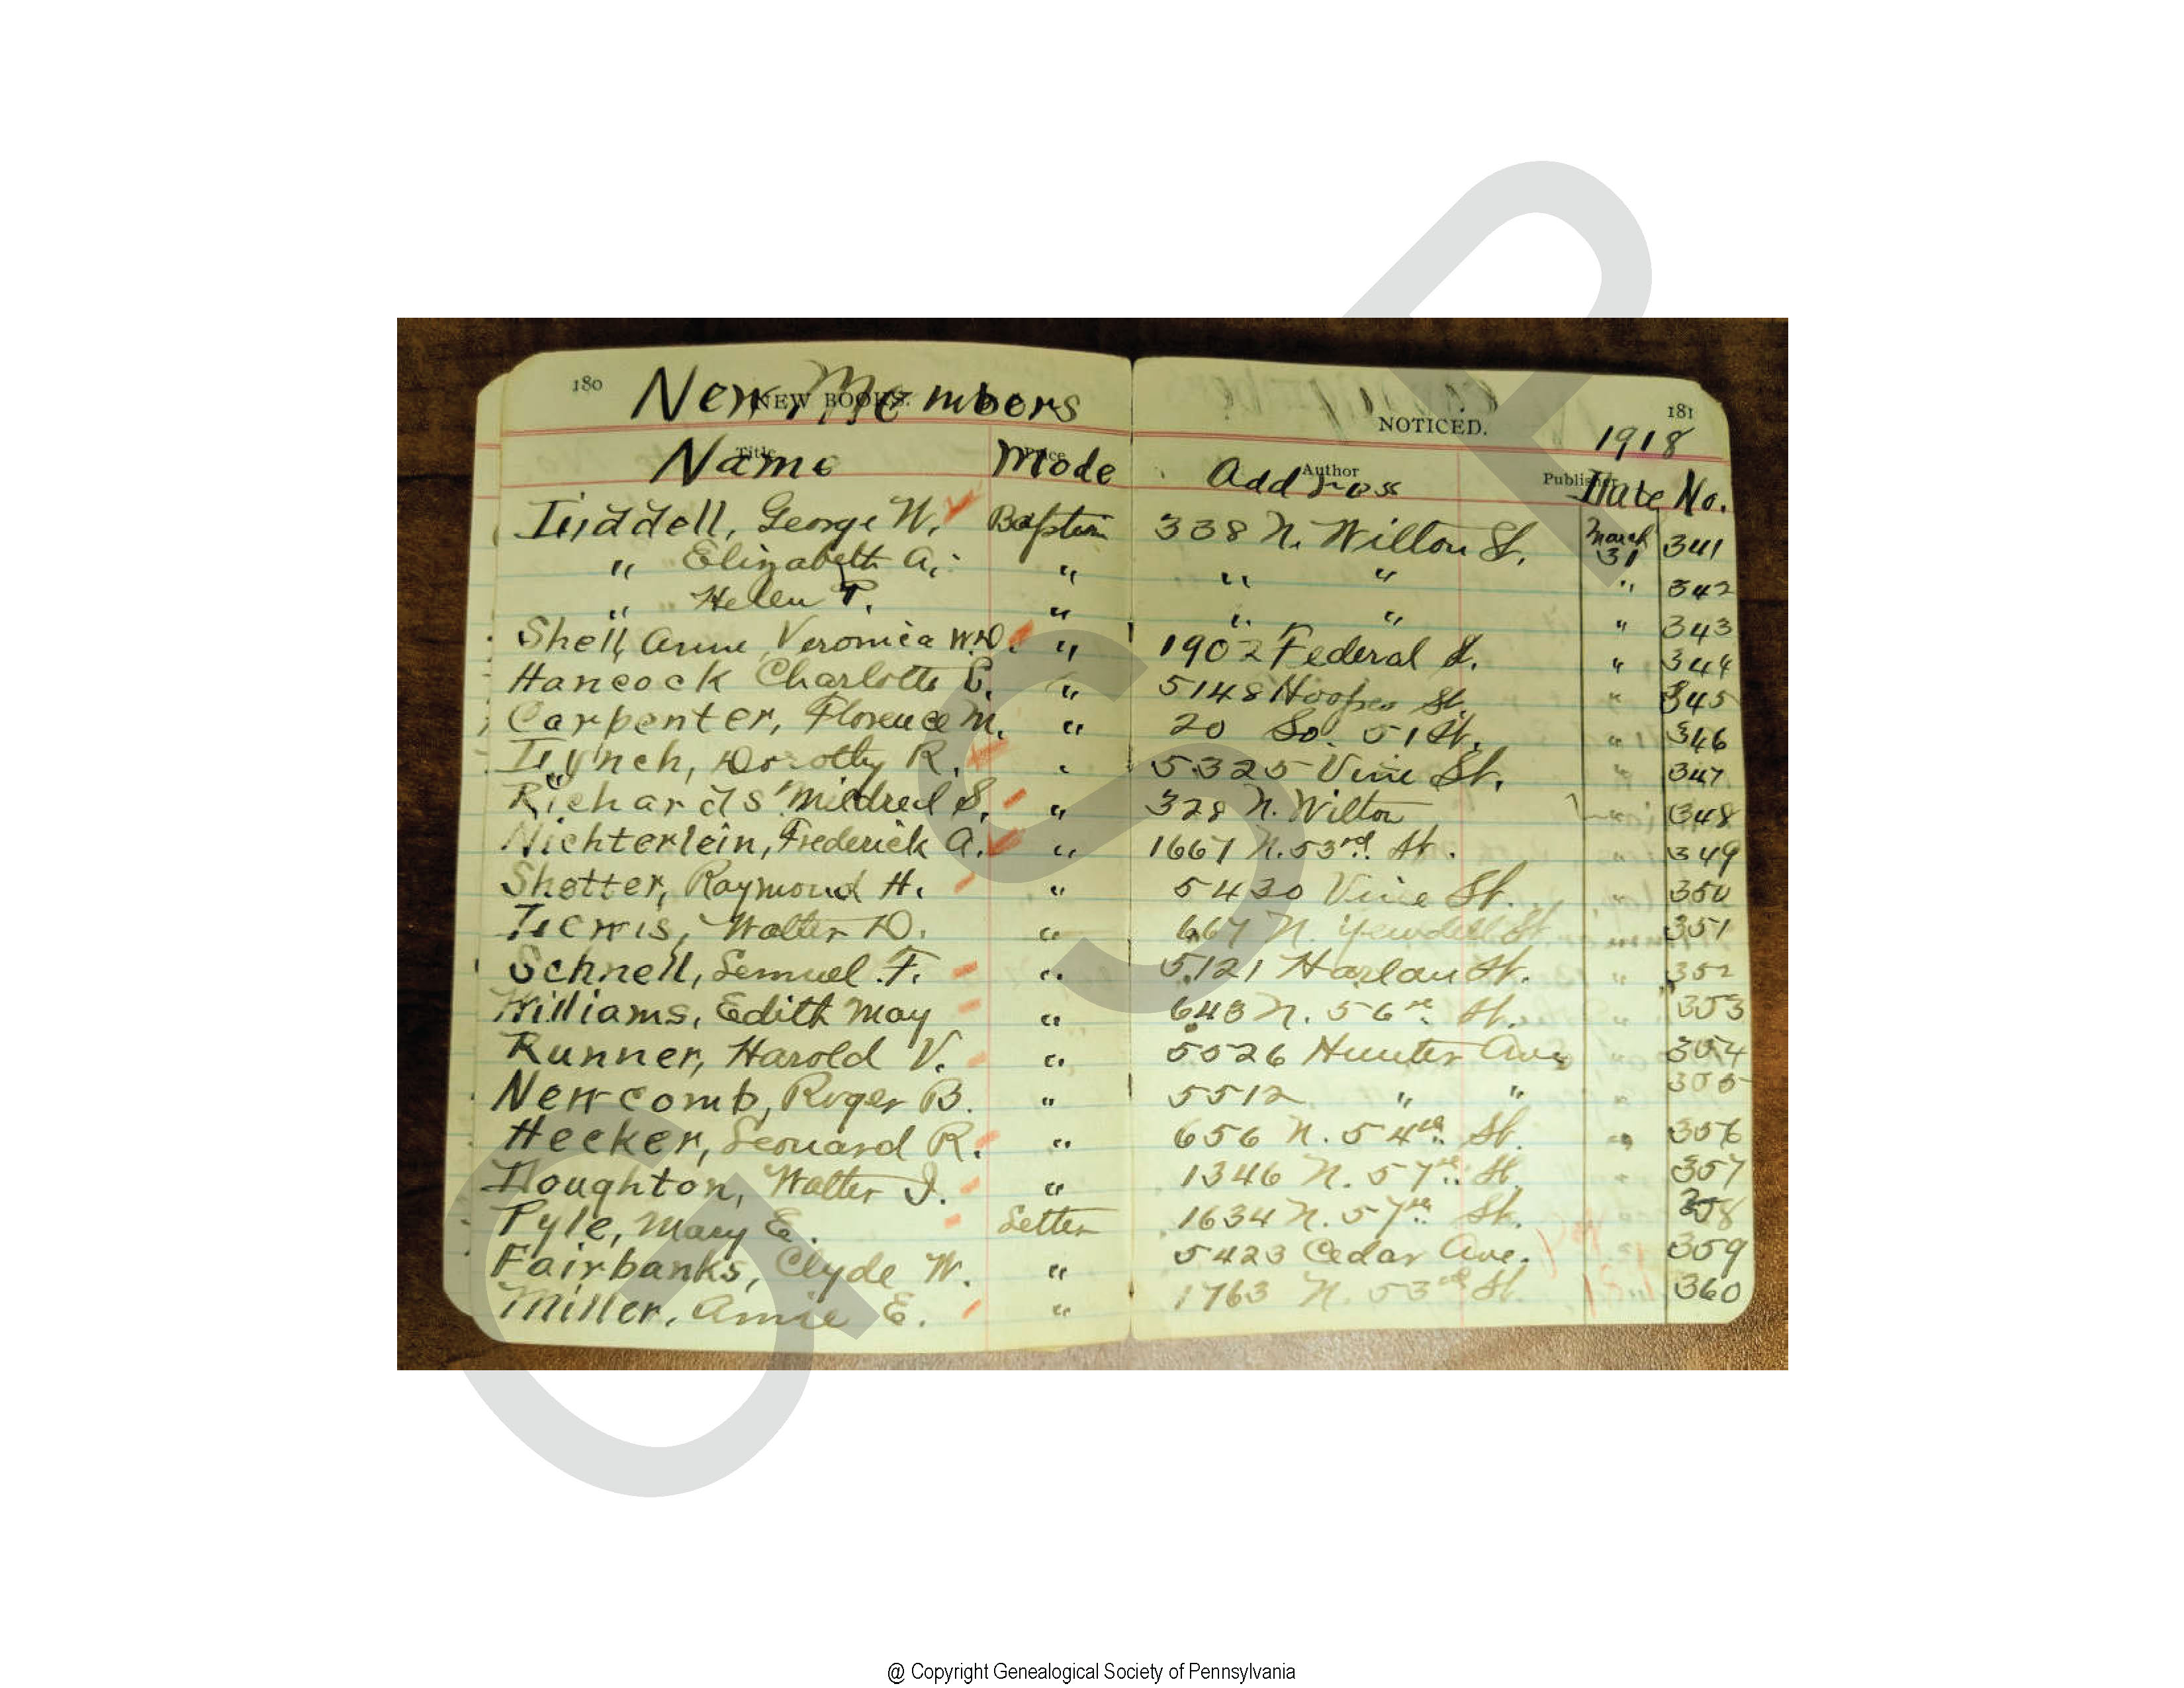 180 New Members NEW BOOKS. NOTICED. 181
1918
Name Title Mode Price Address Author Publisher Date No.
Liddell, George W. Baptism 338 N. Wilton St. March 31 341
" Elizabeth A. " " " " 342
" Helen T. " " " " 343
Shell, Anne Veronica W.D. " 1902 Federal St. " 344
Hancock Charlotte E. " 5148 Hooper St. " 345
Carpenter, Florence M. " 20 So. 51 St. " 346
Lynch, Dorothy R. " 5325 Vine St. " 347
Richards Mildred S. " 328 N. Wilton " 348
Nichterlein, Frederick A. " 1667 N. 53rd St. " 349
Shetter, Raymond H. " 5430 Vine St. " 350
Lewis, Walter D. " 667 N. Yewdell St. 351
Schnell, Lemuel F. " 5121 Harlan St. " 352
Williams, Edith May " 648 N. 56th St. " 353
Runner, Harold V. " 5526 Hunter Ave 354
Newcomb, Roger B. " 5512 " " " 355
Hecker, Leonard R. " 656 N. 54th St. " 356
Houghton, Walter J. " 1346 N. 57th St. " 357
Pyle, Mary E. Letter 1634 N. 57th St. 358
Fairbanks, Clyde W. " 5423 Cedar Ave. " 359
Miller, Annie E. " 1763 N. 53rd St. 360
GSP
@ Copyright Genealogical Society of Pennsylvania